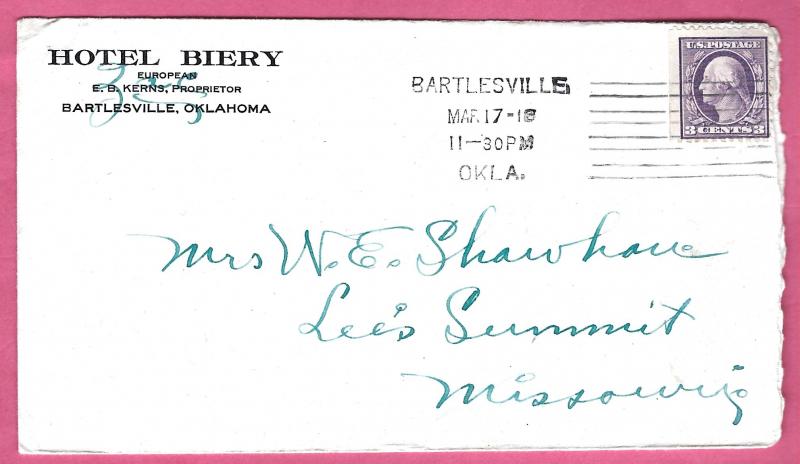 HOTEL BIERY
EUROPEAN
E. B. KERNS, PROPRIETOR
BARTLESVILLE, OKLAHOMA
BARTLESVILLE,
MAR. 17-18
11-30 PM
OKLA.
U.S. POSTAGE
3 CENTS 3
Mrs W. E. Shawhan
Lee's Summit
Missouri